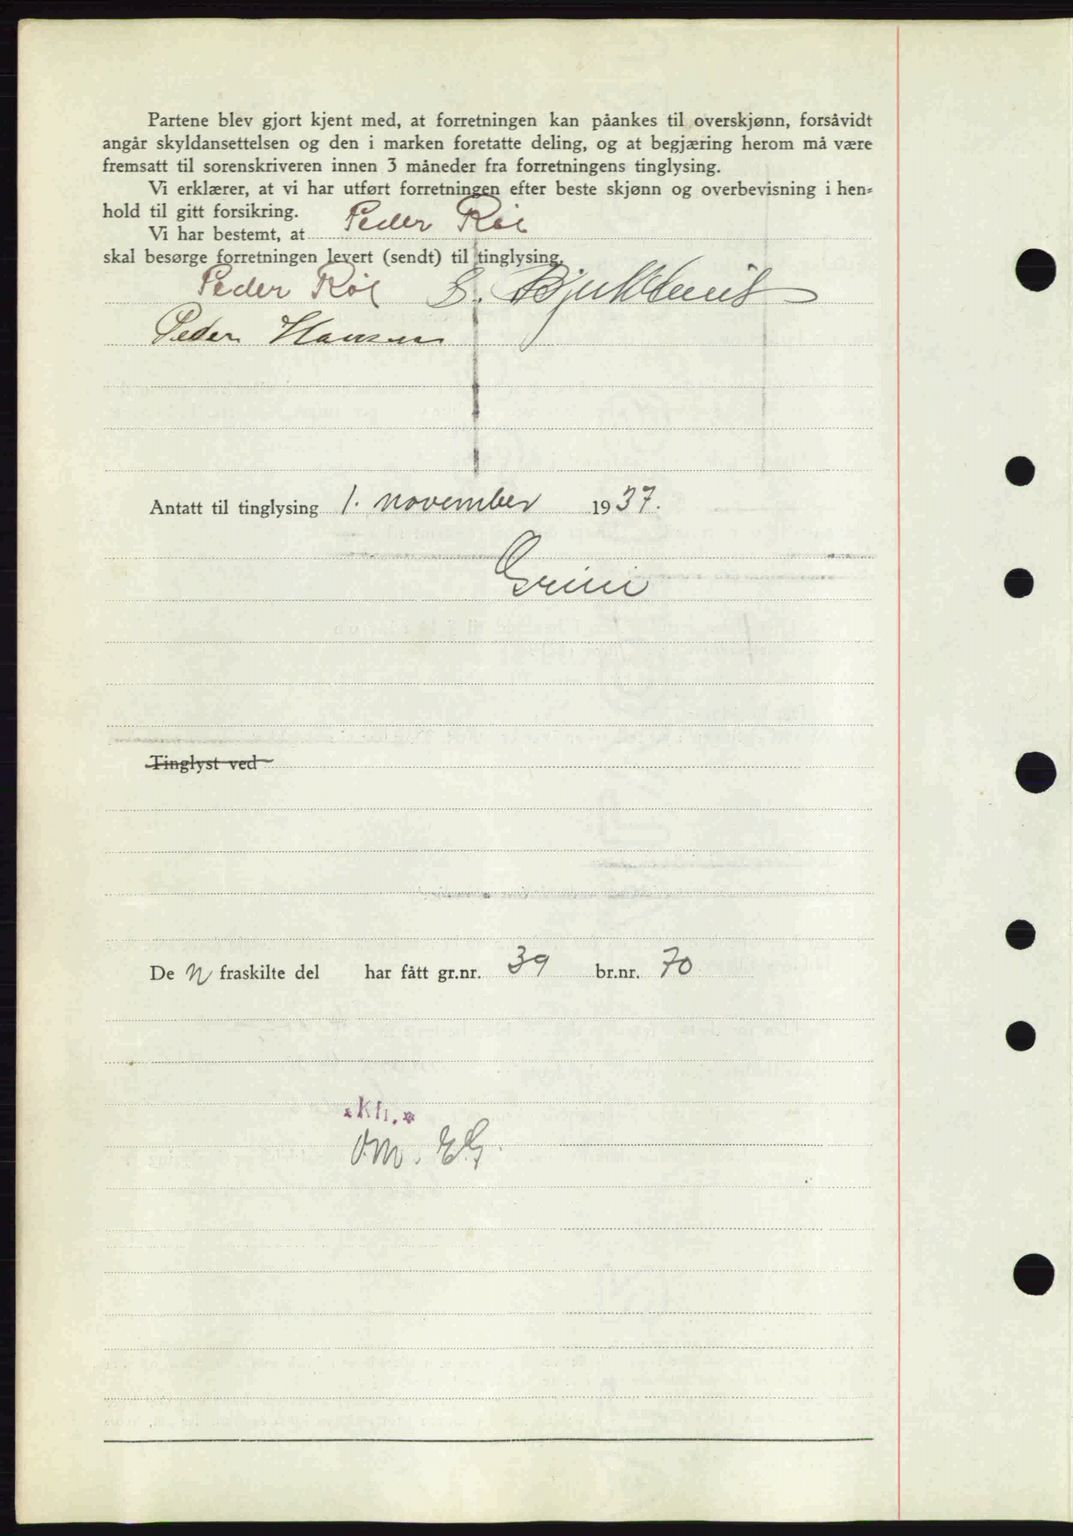 Partene blev gjort kjent med, at forretningen kan påankes til overskjønn, forsåvidt
angår skyldansettelsen og den i marken foretatte deling, og at begjæring herom må være
fremsatt til sorenskriveren innen 3 måneder fra forretningens tinglysing.
Vi erklærer, at vi har utført forretningen efter beste skjønn og overbevisning i hen=
hold til gitt forsikring.
Vi har bestemt, at Peder Röe
skal besørge forretningen levert (sendt) til tinglysing.
Peder Röe
Peder Hansen
Antatt til tinglysing 1. november 1937.
Grini
Tinglyst ved
De n fraskilte del har fått gr.nr. 39 br.nr. 70
*kn.*
EG.